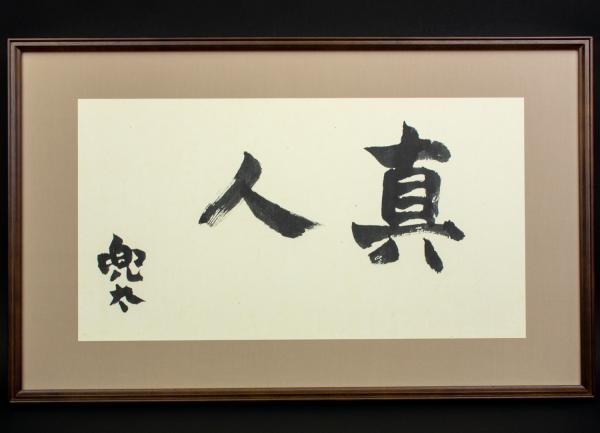 真人
兜太